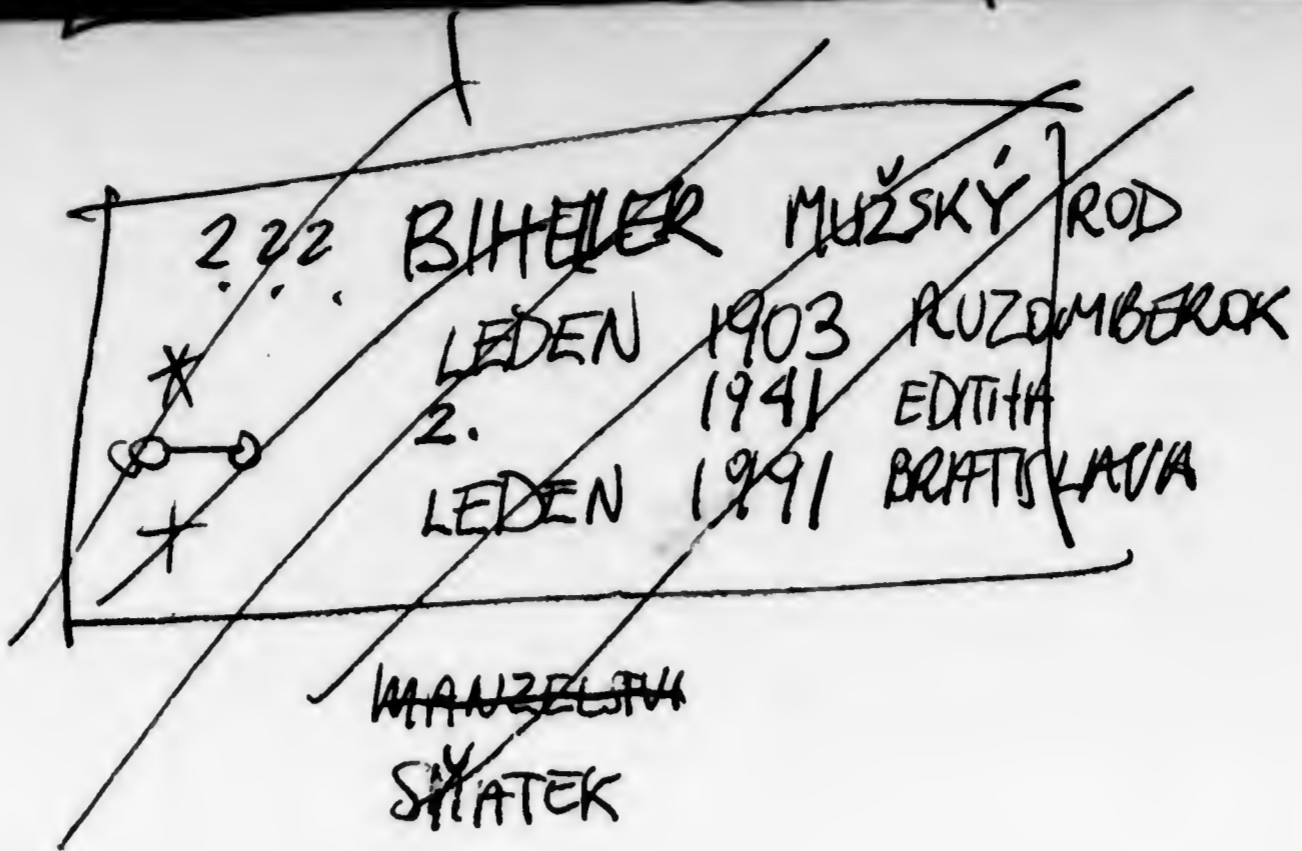 ??? BIHELLER MUŽSKÝ ROD
LEDEN 1903 RUZOMBEROK
2. 1941 EDITHA
LEDEN 1991 BRATISLAVA
MANZELSTVI
SŇATEK